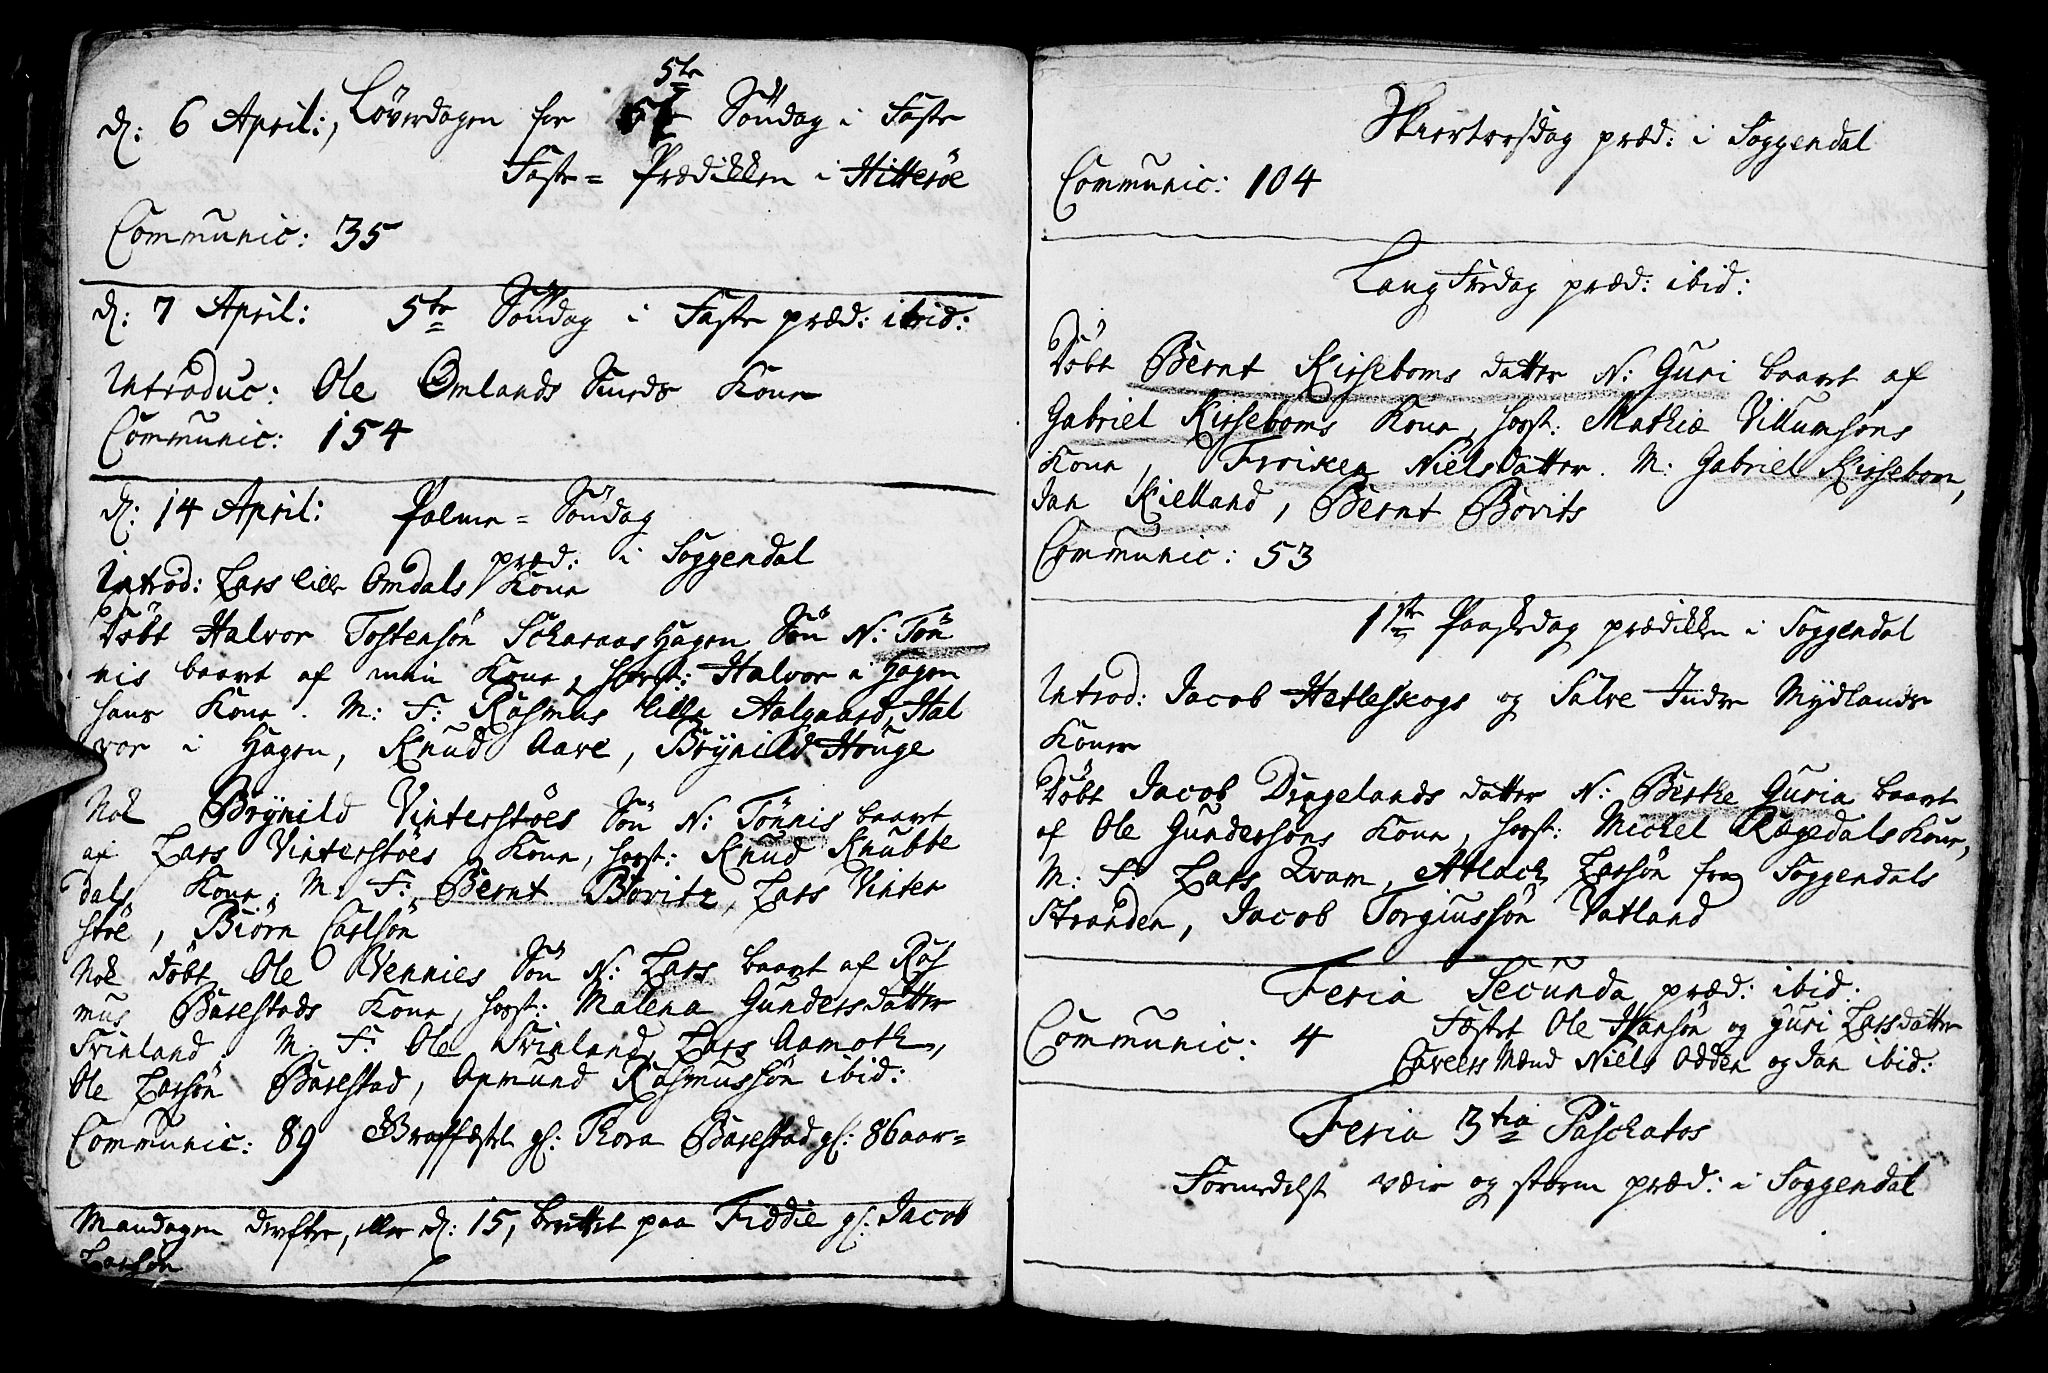 5te
d: 6 April:, Löverdagen for Söndag i Faste
Faste= Prædikken i Hitteröe
Communic: 35
d: 7 April: 5te Söndag i Faste præd: ibid:
Introduc: Ole Omlands Smeds Kone
Communic: 154
d: 14 April: Palme=Söndag
præd: i Soggendal
Introd: Lars lille Omdals Kone
Döbt Halvor Tostensön Scharaas Hagen Sön N: Tön
nis baaret af min Kone, horst: Halvor i Hagen
hans Kone. M: F: Rasmus lille Aalgaard, Hal
vor i Hagen, Knud Aare, Brÿnild Houge
Nok Brÿnild Vinterstöes Sön N: Tönnis baaret
af Lars Vinterstöes Kone, horst: Knud Knubbe
dals Kone. M. F: Bernt Boritz, Lars Vinter
stöe, Biörn Carlsön
Nok döbt Ole Vennies Sön N: Lars baaret af Ras
mus Barestads Kone, horst: Malena Gundersdatter
Treland. M. F: Ole Treland, Lars Aamoth,
Ole Larsön Barestad, Aamund Rasmussön ibid:
Communic: 89 Graffæstet gl: Thora Barestad gl: 86 aar=
Mandagen derefter, eller d: 15, berettet paa Fiddie gl: Jacob
Larsön
Skiertorsdag præd: i Soggendal
Communic: 104
Lang Fredag præd: ibid:
Döbt Bernt Kirseboms datter N: Guri baaret af
Gabriel Kirseboms Kone, horst: Mathiæ Villumsöns
Kone, Froiken Nielsdatter. M: Gabriel Kirsebom,
Jan Kielland, Bernt Borits
Communic: 53
1ste Paaskedag prædikken i Soggendal
Introd: Jacob Hetleskogs og Salve Indre Mydlands
Koner
Döbt Jacob Dragelands datter N: Berthe Guria baaret
af Ole Gundersöns Kone, horst: Michel Ragedals Kone,
M: F: Lars Qvam, Atlach Larsön fra Soggendals
Stranden, Jacob Torgiussön Vatland
Feria Secunda præd: ibid:
Communic: 4 Fæstet Ole Hansön og Guri Larsdatter
Caveers Mænd Niels Odden og Jan ibid:
Feria 3tia Paschatos
Formedelst veir og storm præd: i Soggendal